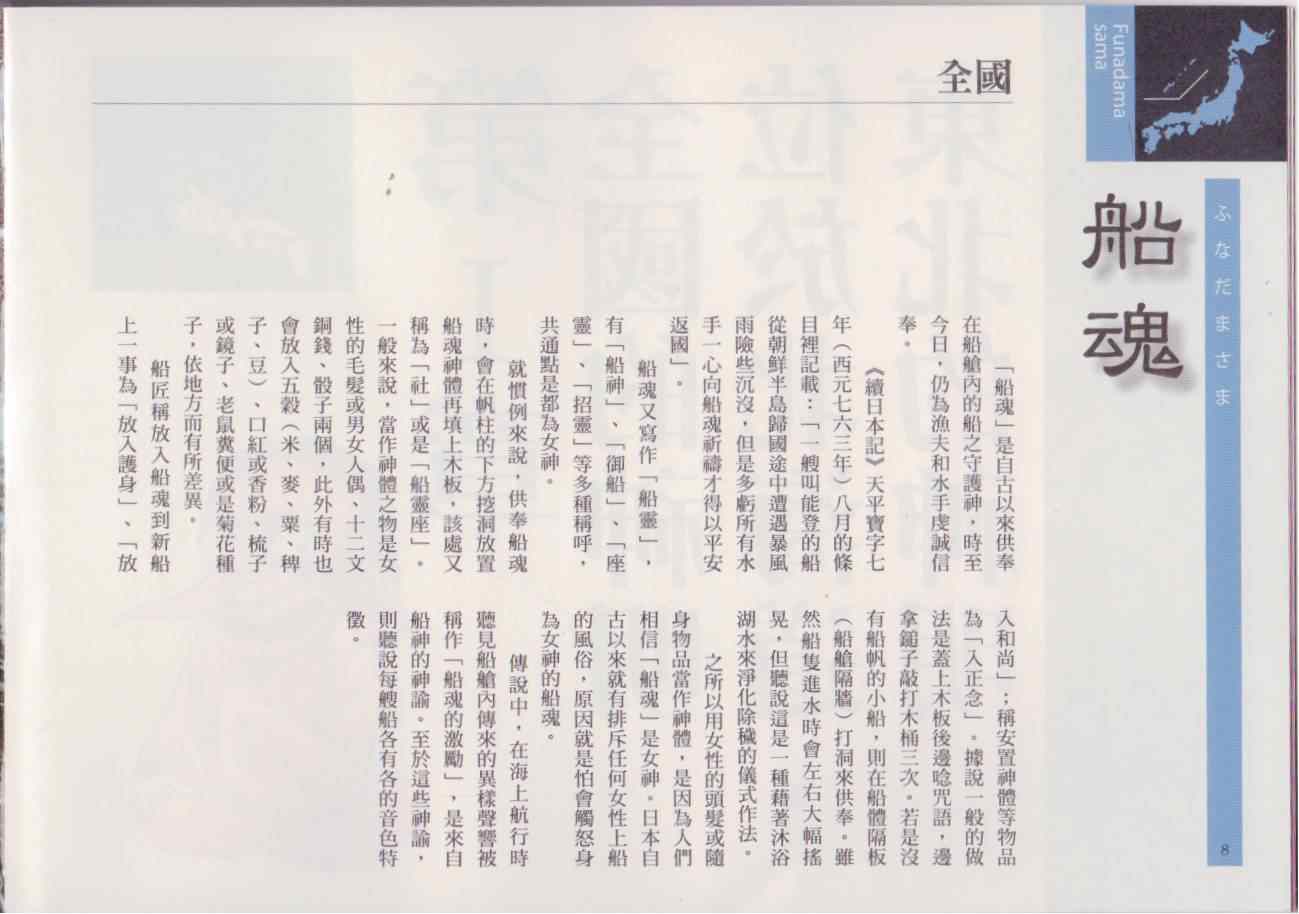 Funadama
sama
ふなだまさま
船魂
全國
「船魂」是自古以來供奉
在船艙內的船之守護神，時至
今日，仍為漁夫和水手虔誠信
奉。
《續日本記》天平寶字七
年（西元七六三年）八月的條
目裡記載：「一艘叫能登的船
從朝鮮半島歸國途中遭遇暴風
雨險些沉沒，但是多虧所有水
手一心向船魂祈禱才得以平安
返國」。
船魂又寫作「船靈」，
有「船神」、「御船」、「座
靈」、「招靈」等多種稱呼，
共通點是都為女神。
就慣例來說，供奉船魂
時，會在帆柱的下方挖洞放置
船魂神體再填上木板，該處又
稱為「社」或是「船靈座」。
一般來說，當作神體之物是女
性的毛髮或男女人偶、十二文
銅錢、骰子兩個，此外有時也
會放入五穀（米、麥、粟、稗
子、豆）、口紅或香粉、梳子
或鏡子、老鼠糞便或是菊花種
子，依地方而有所差異。
船匠稱放入船魂到新船
上一事為「放入護身」、「放
入和尚」；稱安置神體等物品
為「入正念」。據說一般的做
法是蓋上木板後邊唸咒語，邊
拿鎚子敲打木桶三次。若是沒
有船帆的小船，則在船體隔板
（船艙隔牆）打洞來供奉。雖
然船隻進水時會左右大幅搖
晃，但聽說這是一種藉著沐浴
湖水來淨化除穢的儀式作法。
之所以用女性的頭髮或隨
身物品當作神體，是因為人們
相信「船魂」是女神。日本自
古以來就有排斥任何女性上船
的風俗，原因就是怕會觸怒身
為女神的船魂。
傳說中，在海上航行時
聽見船艙內傳來的異樣聲響被
稱作「船魂的激勵」，是來自
船神的神諭。至於這些神諭，
則聽說每艘船各有各的音色特
徵。
8